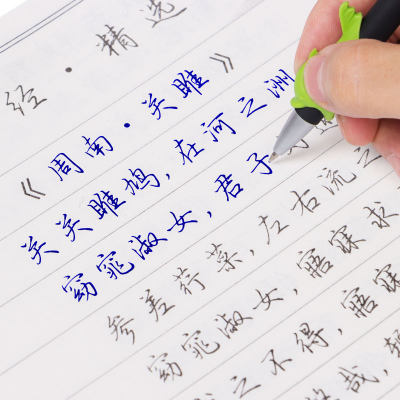 经·精选
《周南·关雎》
关关雎鸠,在河之洲
窈窕淑女,君子
参差荇菜,左右流之
窈窕淑女,寤寐求
之不得,寤寐
哉,